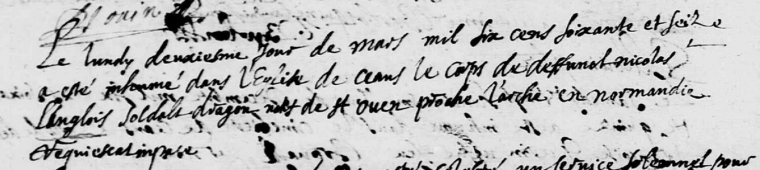 Le lundy deuxiesme Jour de mars mil six cens soixante et seize
a esté inhumé dans l'Eglise de ceans le corps de deffunct nicolas
Langlois soldalt dragon natif de st ouen proche l'arche en normandie
Requiescat in pase
un service solennel pour